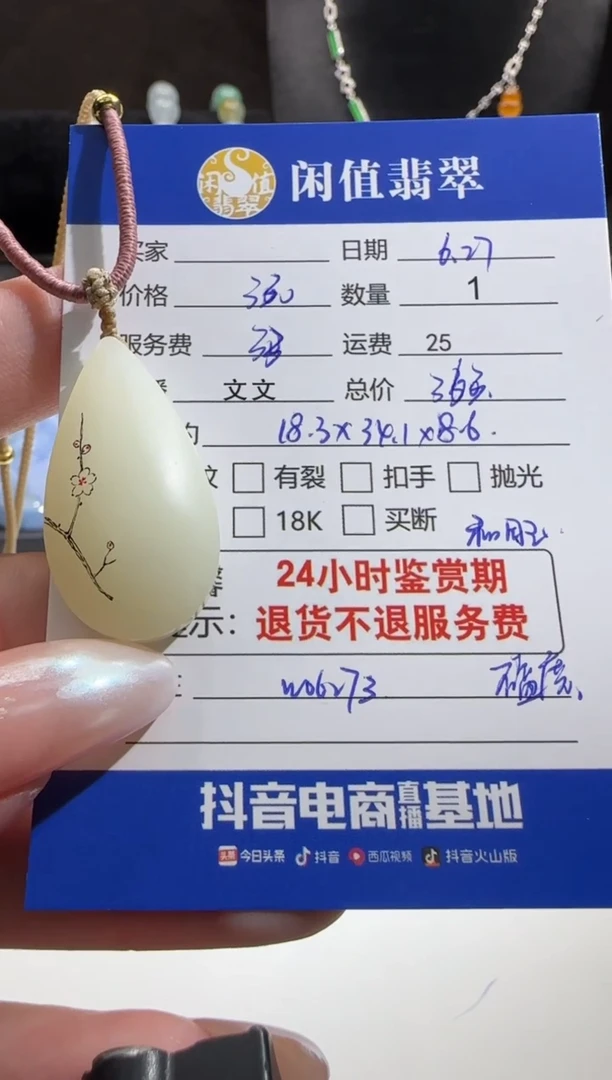 闲值翡翠
闲值翡翠
买家 日期 6.27
价格 350 数量 1
服务费 运费 25
文文 总价
约 18.3×34.1×8.6.
纹 有裂 扣手 抛光
18K 买断 和田玉
馨 24小时鉴赏期
提示：退货不退服务费
W06273
抖音电商直播基地
头条 今日头条 抖音 西瓜视频 抖音火山版